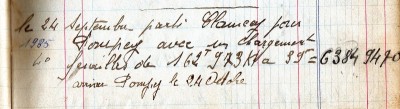 le 24 septembre parti Blamcay pour
1935 Pompey avec un chargement
4° feuilles de 162T 973K à 39F = 6384 94 70
arrivé Pompey le 24 Octobre